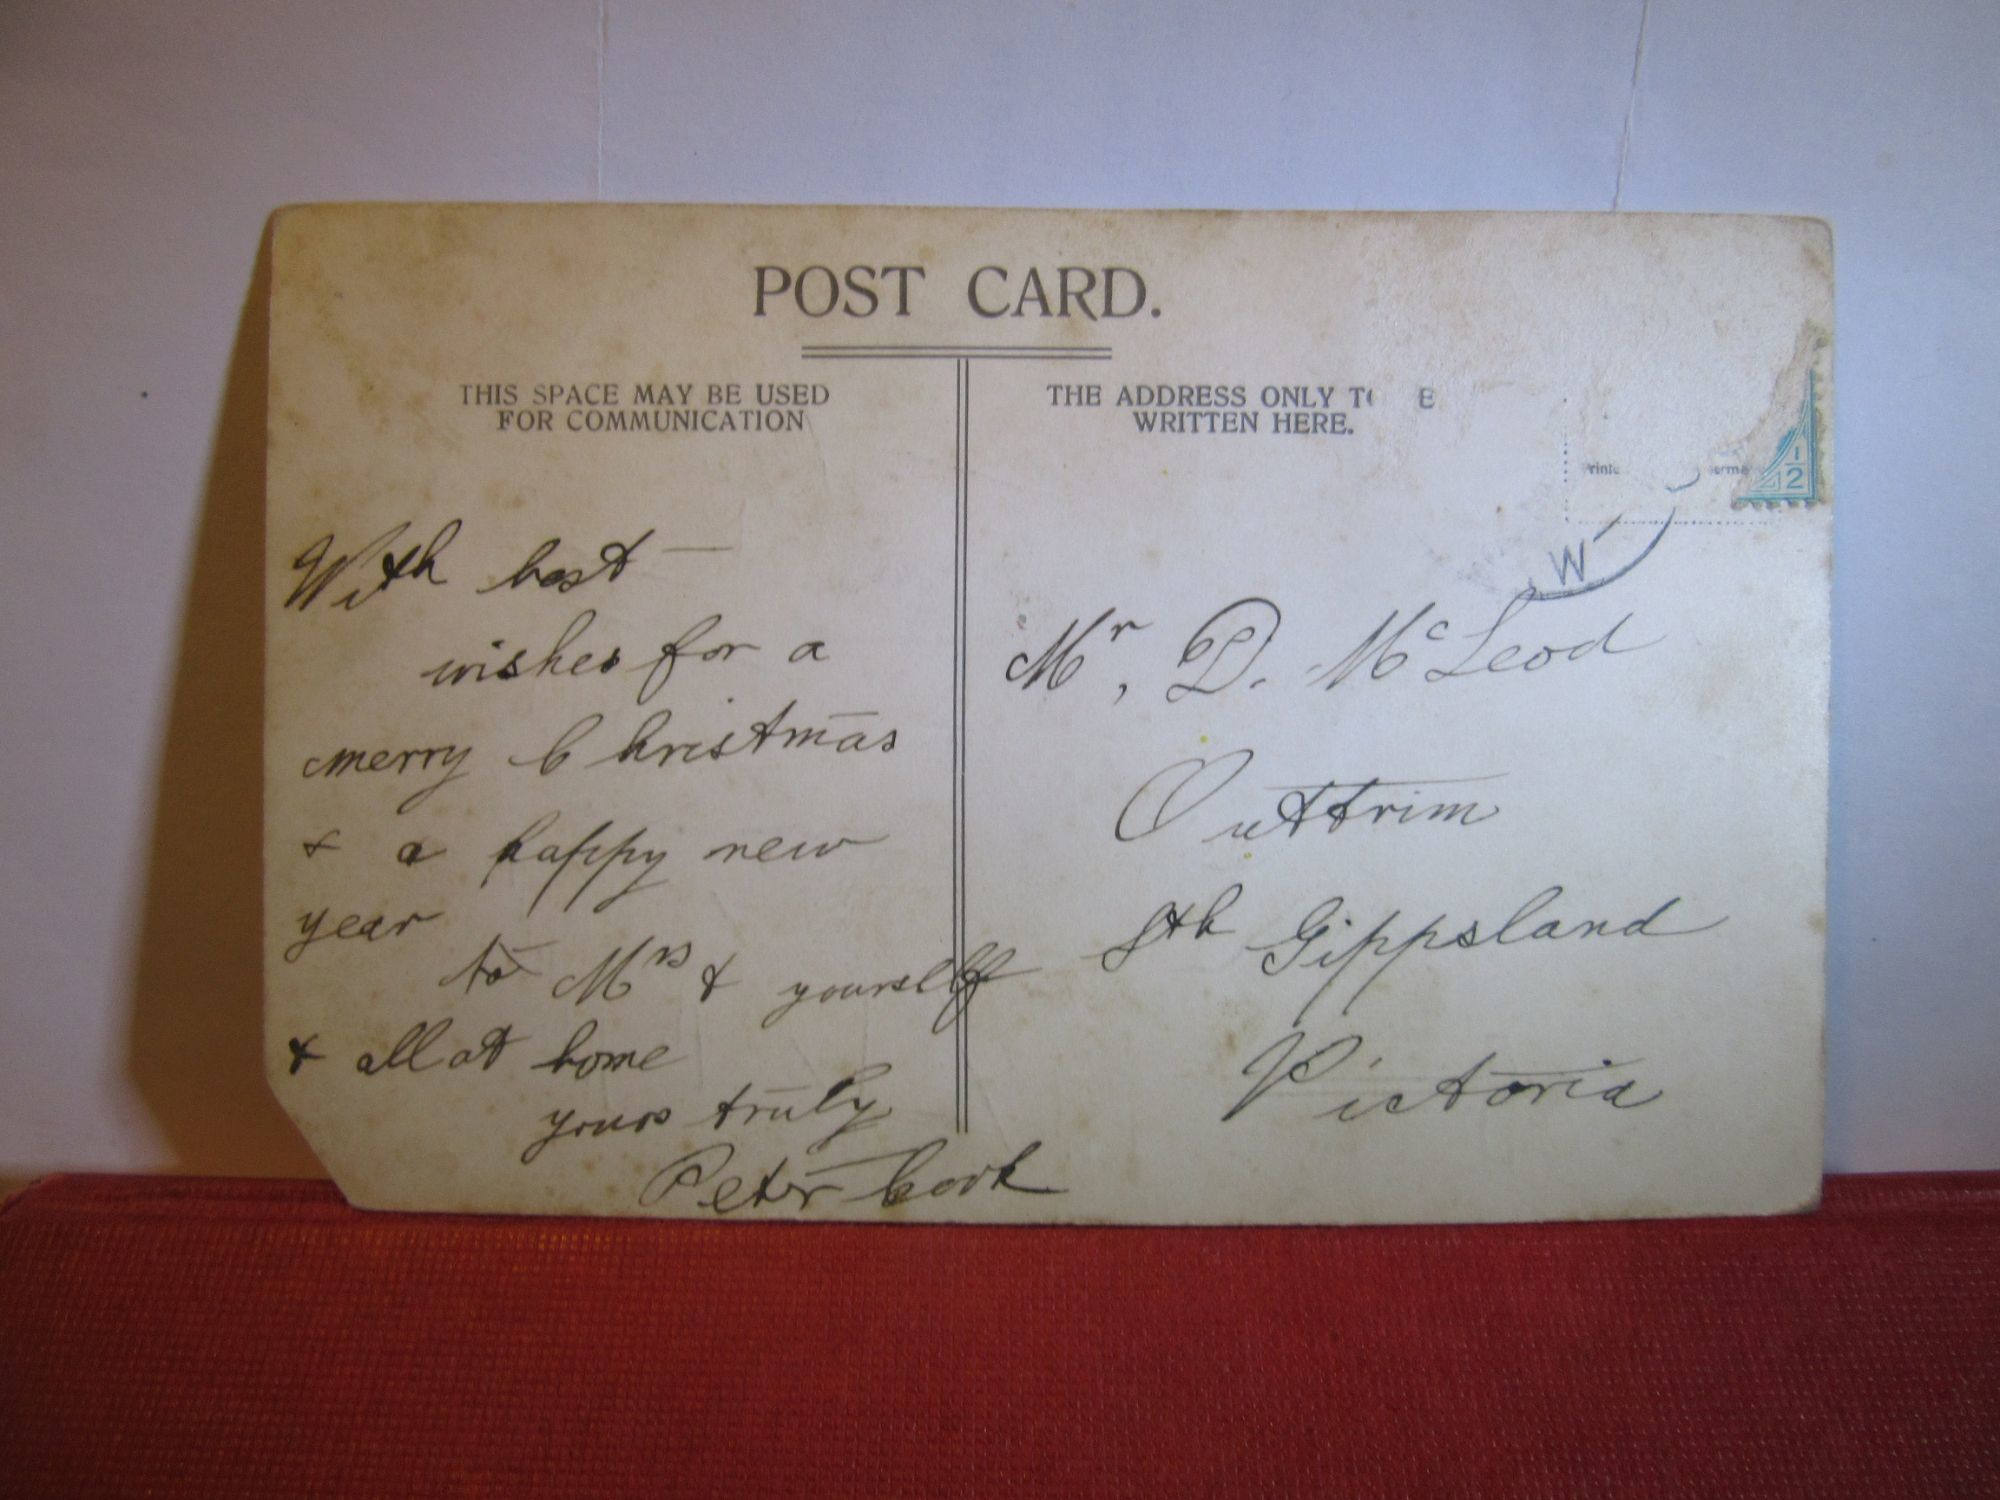 POST CARD.
THIS SPACE MAY BE USED
FOR COMMUNICATION
With best
wishes for a
merry Christmas
& a happy new
year
to Mrs & yourself
& all at home
yours truly
Peter Cook
THE ADDRESS ONLY TO E
WRITTEN HERE.
1/2
W
Mr, D. McLeod
Outtrim
Sth Gippsland
Victoria